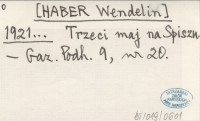 [HABER Wendelin]
1921... Trzeci maj na Spiszu
– Gaz. Podh. 9, nr 20.